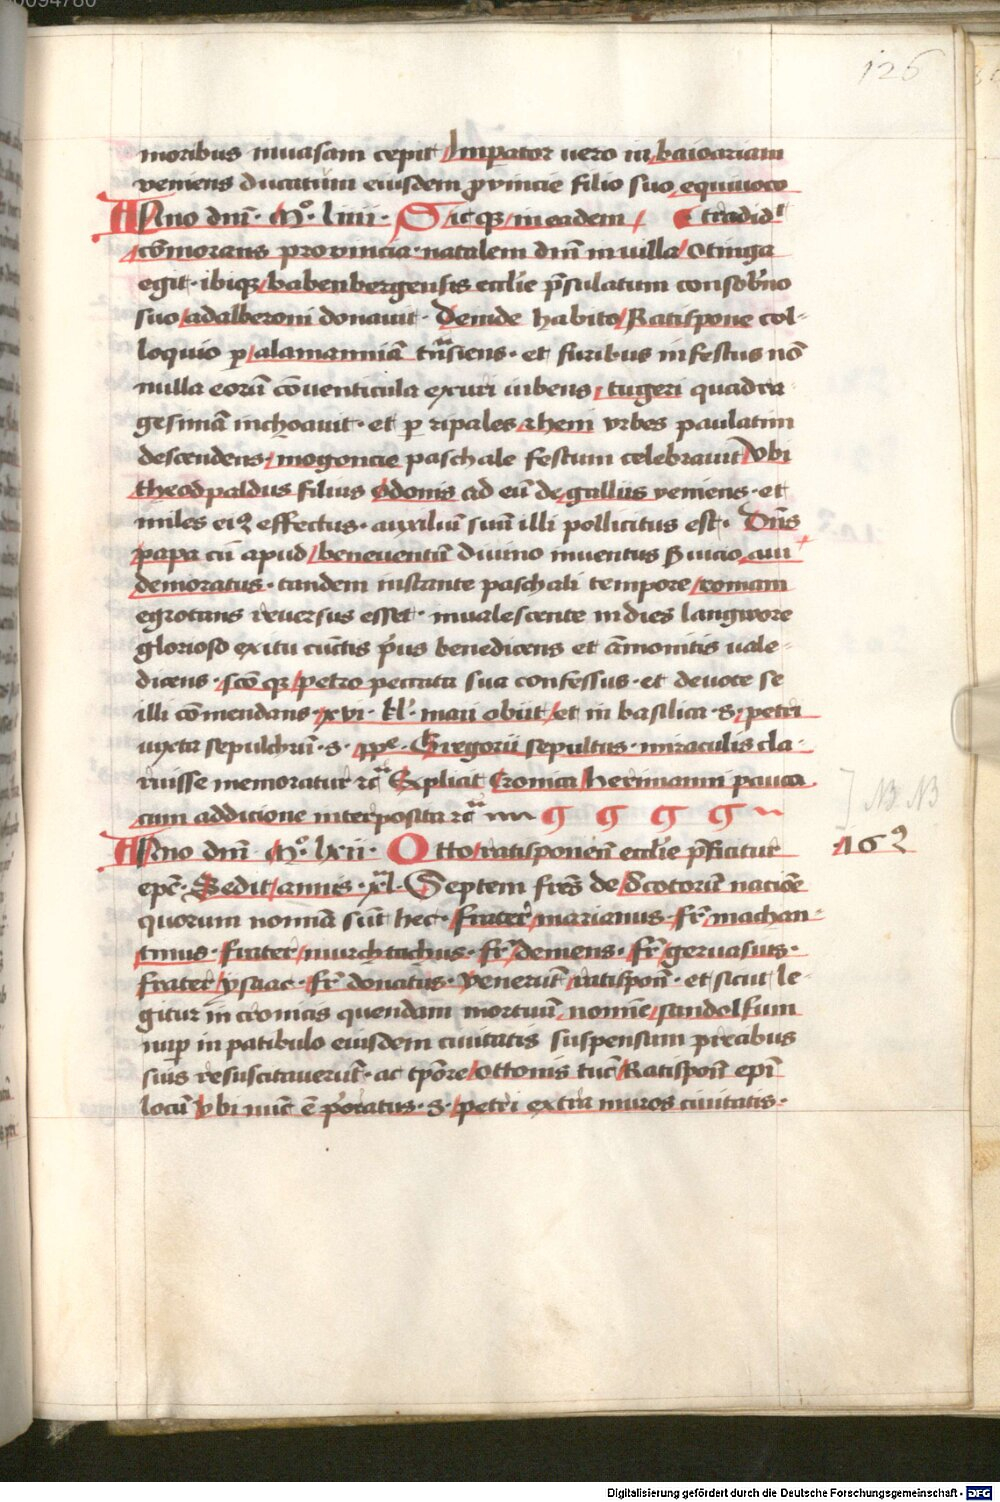 126
moribus inuasam cepit Imperator uero in baioariam
veniens ducatum eiusdem provincie filio suo equiuoco
Anno dnī · Mº · liiii · Sicqȝ in eadem tradidᵗ
cōmorans prouincia · natalem dnī in uilla Otinga
egit · ibiqȝ babenbergensis eccl̄ie p̄sulatum consobrīno
suo adalberoni donauit · Deinde habito Ratispone col-
loquio p alamanniā tnsiens · et furibus infestus nō
nulla eorū cōuenticula exuri iubens tugeri quadra
gesimā inchoauit · et p ripales rheni vrbes paulatim
descendens mogoncie paschale festum celebrauit Vbi
theodpaldus filius Odonis ad eū de galliis veniens · et
miles eiꝰ effectus · auxiliū suū illi pollicitus est · Dn̄s
papa cū apud beneuentū diuino inuentus
demoratus · tandem instante paschali tempore romam
egrotans reuersus esset · inualescente in dies langwore
glorioso exitu cūctis p̄us benedicens et āmonitis uale-
dicens · scōqȝ petro peccata sua confessus · et deuote se
illi cōmendans · xvi · kl · maii obiit et in basilica · s · petri
iuxta sepulchrū · s · ppe · Gregorii sepultus · miraculis cla-
ruisse memoratur rc̄ Explicit Cronica herimanni pauca
cum addicione interposita rc̄
Anno dnī · Mº · lxii · Otto ratisponeñ eccl̄ie p̄ficitur 1062
epc̄ · Sedit annis · xl · Septem fres̄ de Scotorū nacioē
quorum nomīa sūt hec · frater marianus · fr̄ machan-
tinus · frater murchtachus · fr̄ demens · fr̄ geruasius ·
frater ysaac · fr̄ donatus · Venerūt ratisponn̄ · et sicut le-
gitur in cronicis quendam mortuū nomīe sandolfum
nup in patibulo eiusdem ciuitatis suspensum precibus
suis resuscitauerūt · ac tp̄ore Ottonis tūc Ratisponn̄ epī
locū vbi nūc ē p̄oratus · s · petri extra muros ciuitatis ·
Digitalisierung gefördert durch die Deutsche Forschungsgemeinschaft - DFG